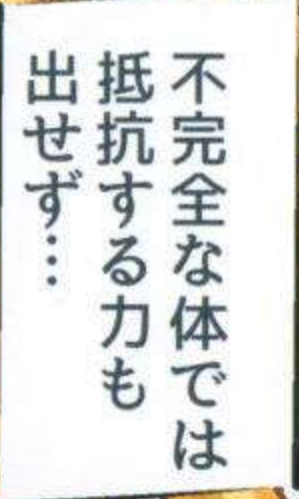 不完全な体では
抵抗する力も
出せず…